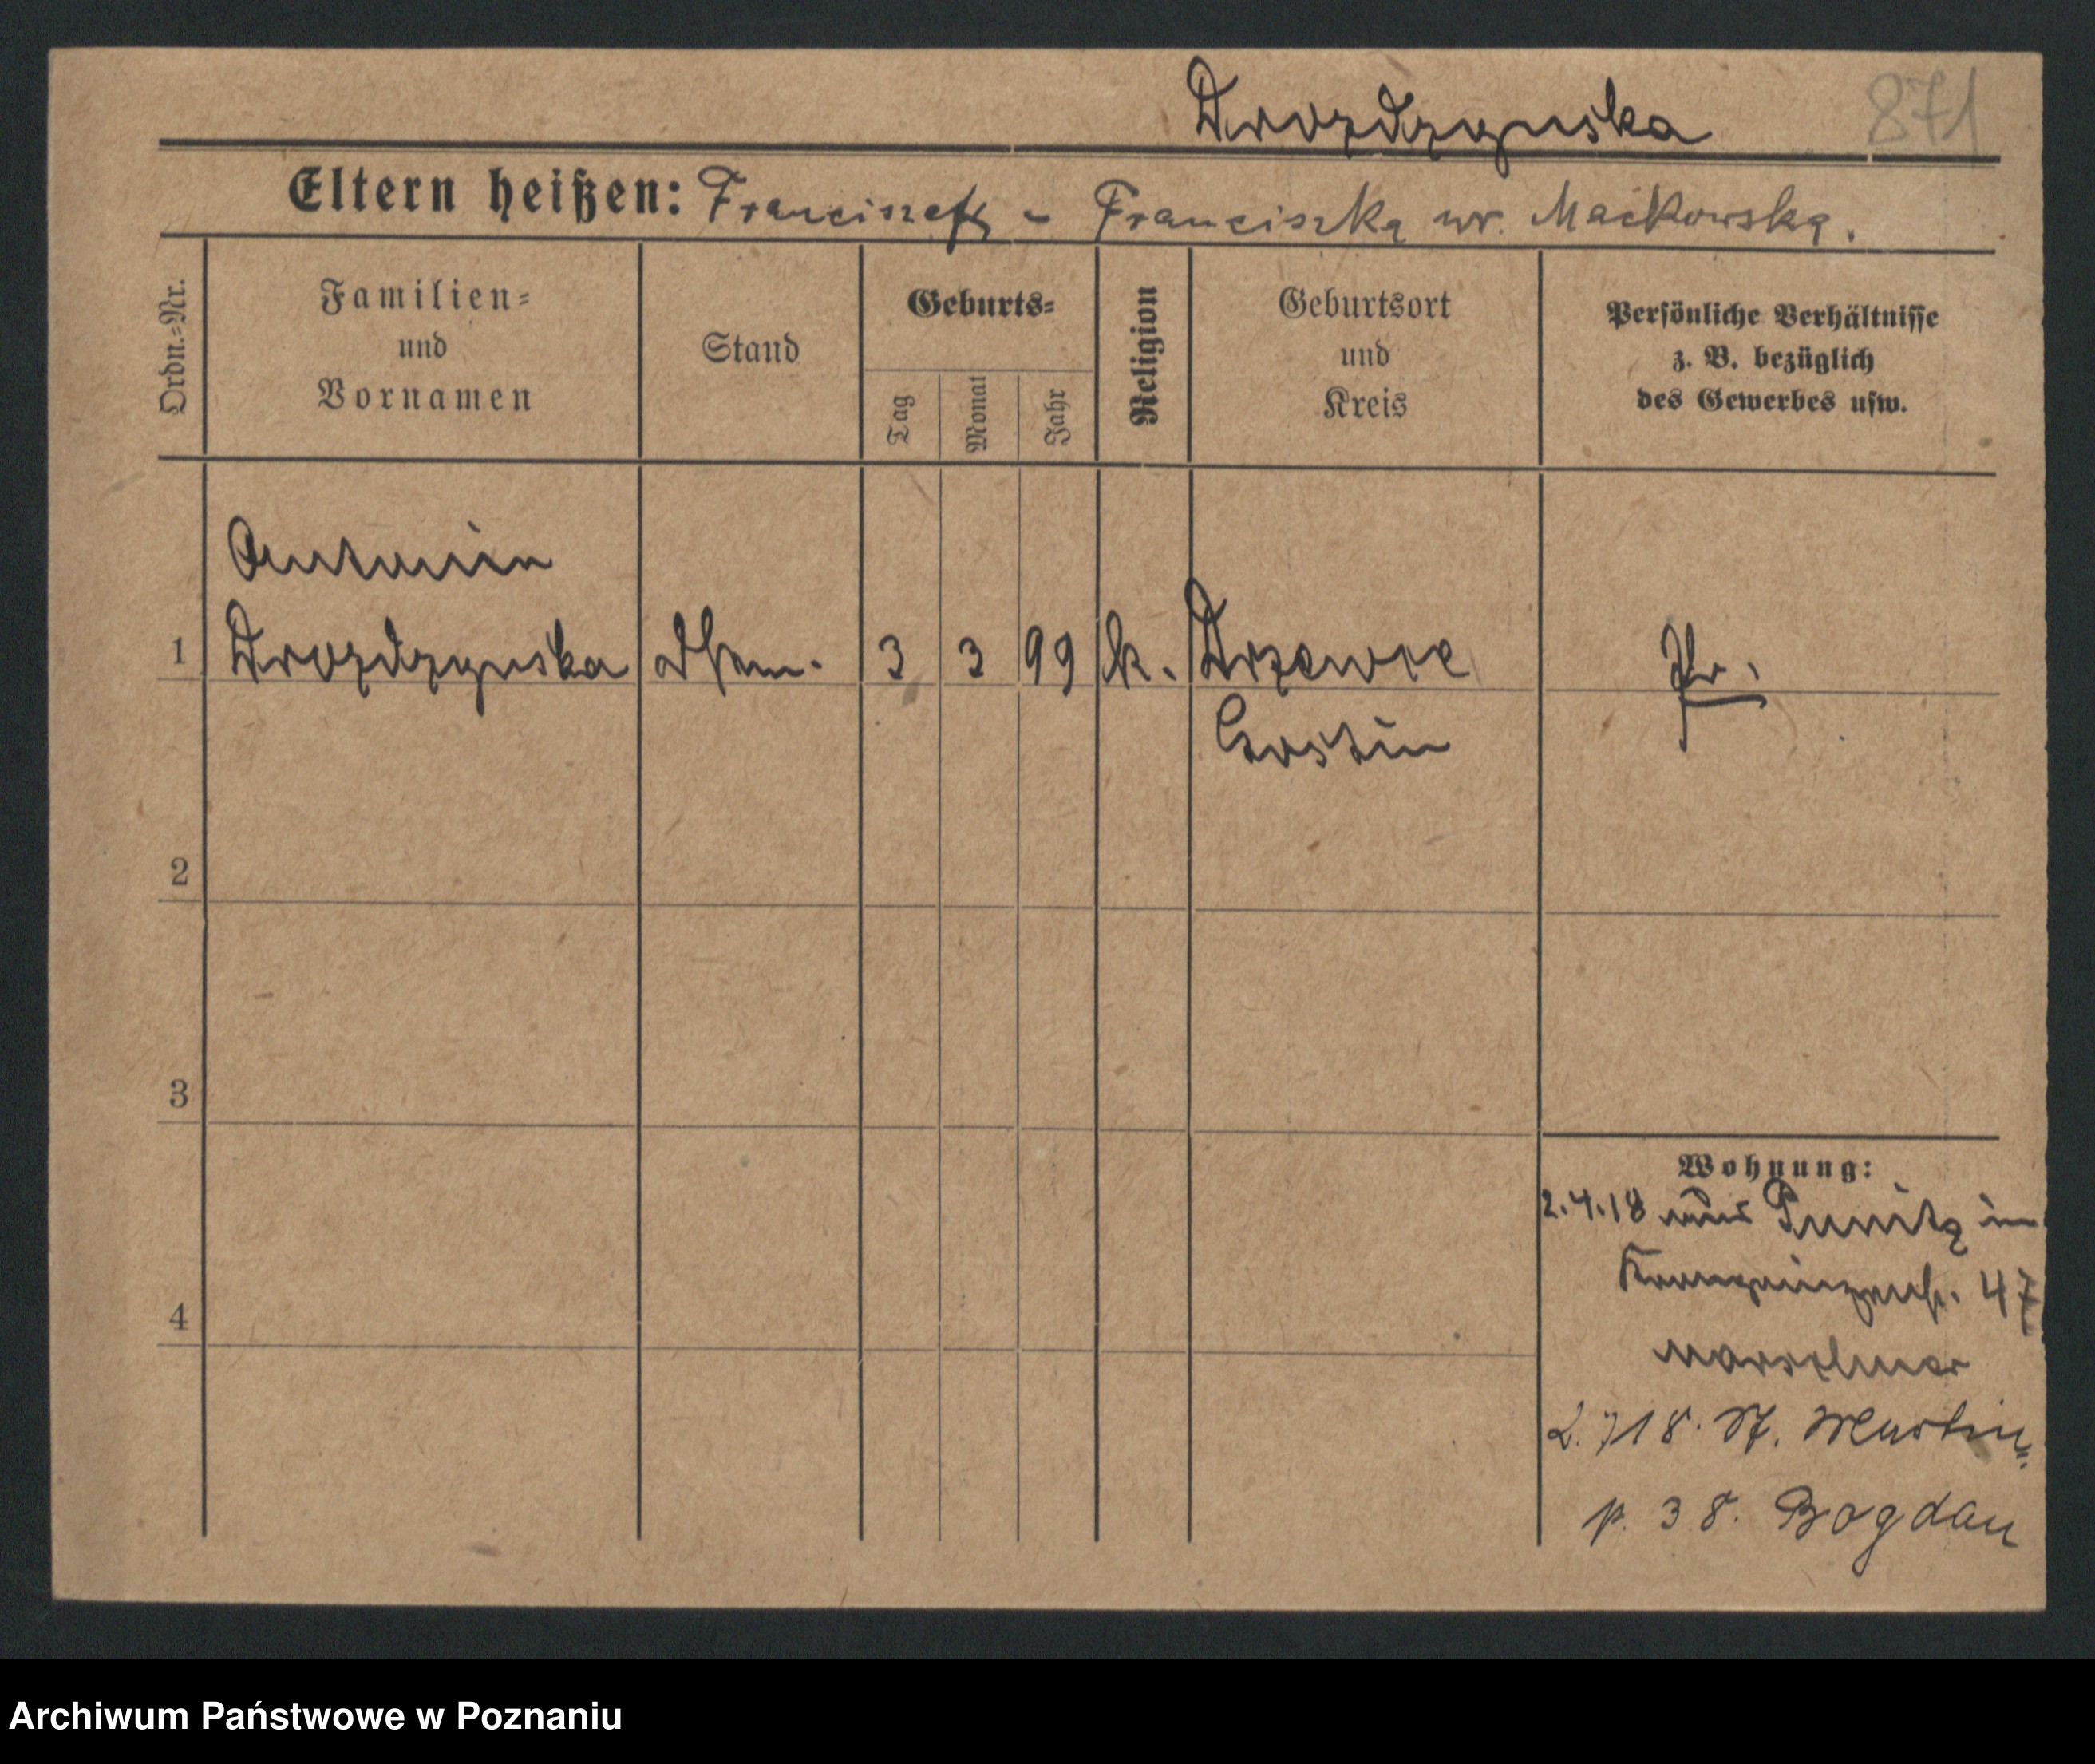 Drozdzynska 871
Eltern heißen: Franciszek - Franciszka ur. Maćkowska.
Ordn.=Nr.
Familien=
und
Vornamen
Stand
Geburts=
Tag
Monat
Jahr
Religion
Geburtsort
und
Kreis
Persönliche Verhältnisse
z. B. bezüglich
des Gewerbes usw.
Antonien
1 Drozdzynska 3 3 99 k. Drzewce Pr.
Gostin
2
3
4
Wohnung:
2.4.18 aus Punitz in
Kronprinzenstr. 47
2.718. St. Martin
p. 38. Bogdan
Archiwum Państwowe w Poznaniu